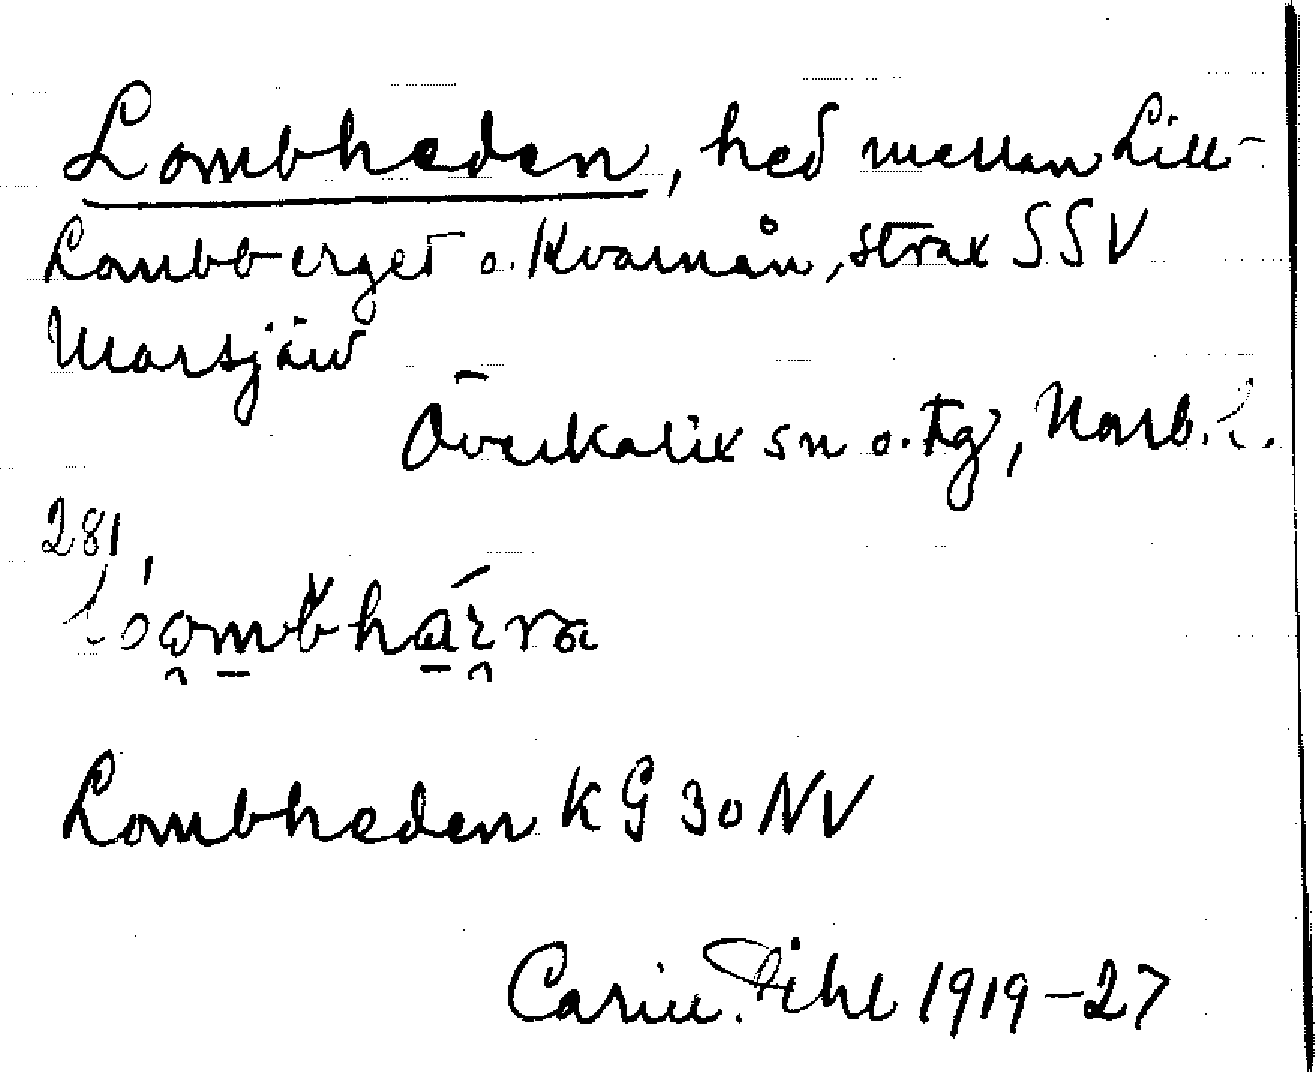 Lombheden, hed mellan Lill-
Lombberget o. Kvarnån, strax SSV
Marsjärv
Överkalix sn o. tg, Norrb. l.
281
Lombheden KG 30 NV
Carin Pihl 1919-27